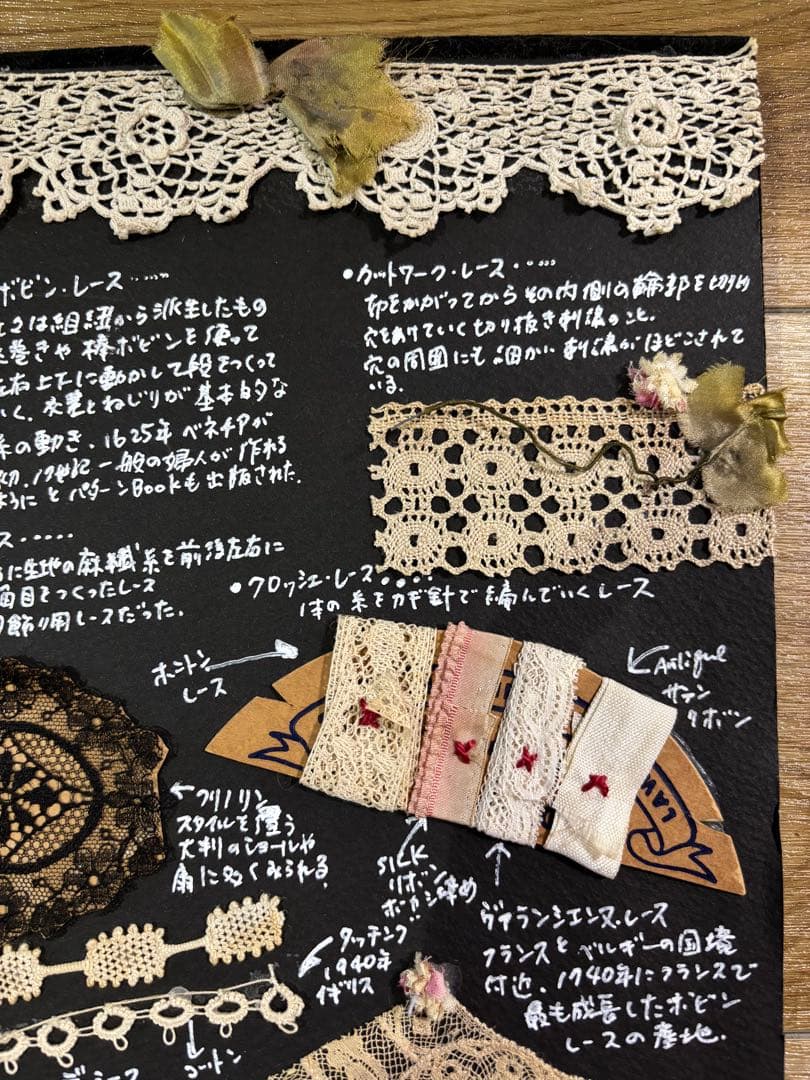 ボビン・レース‥‥‥
さは組紐から派生したもの
巻きや棒ボビンを使って
左右上下に動かして段をつくって
いく、交差とねじりが基本的な
糸の動き、1625年ベネチアが
初、17世紀一般の婦人が作れる
ようにとパターンBookも出版された。
ス‥‥‥
に生地の麻繊糸を前後左右に
面目をつくったレース
飾り用レースだった。
•カットワーク・レース‥‥
布をかがってからその内側の輪郭を切り
穴をあけていく切り抜き刺繍のこと。
穴の周囲にも細かい刺繍がほどこされて
いる。
•クロッシェ・レース‥‥
1本の糸をカギ針で編んでいくレース
ホニトン
レース
Antique
サテン
リボン
クリノリン
スタイルを覆う
大判のショールや
扇に多くみられる。
SILK
リボン
ボカシ染め
ヴァランシエンヌ・レース
フランスとベルギーの国境
付近、1940年にフランスで
最も成長したボビン
レースの産地。
タッチング
1940年
イギリス
コットン
LAV